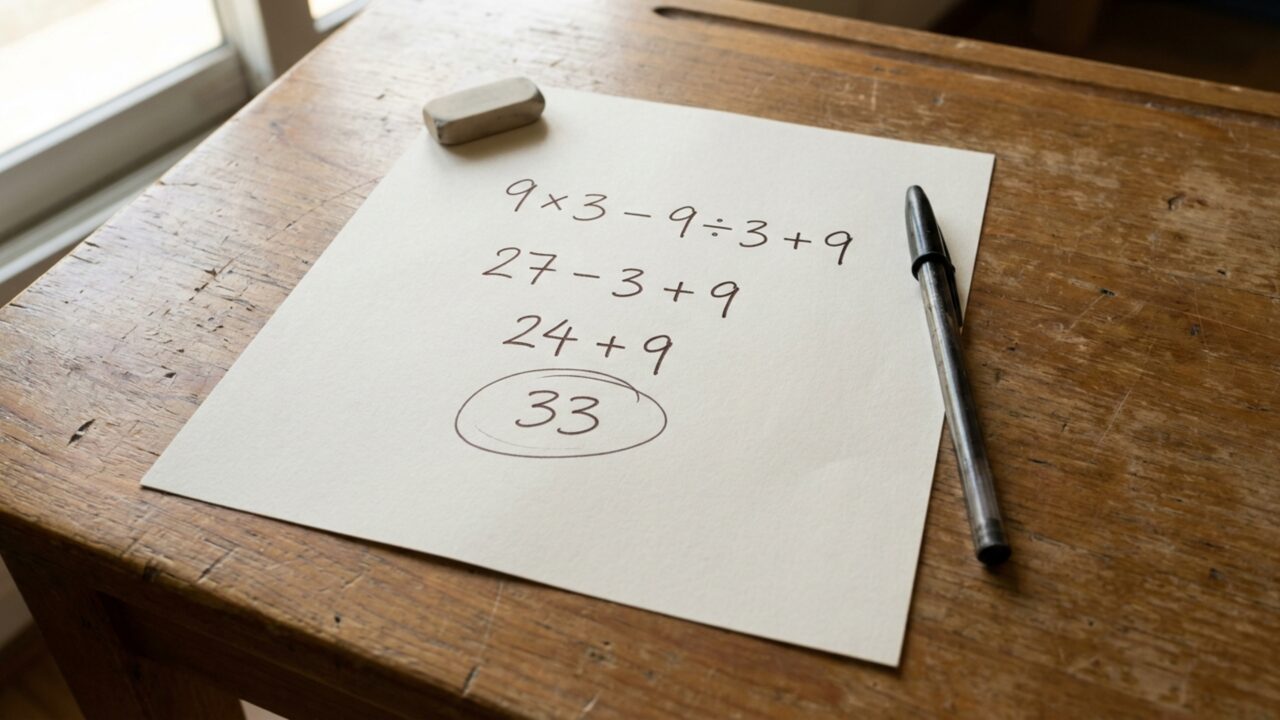 9 × 3 − 9 ÷ 3 + 9
27 − 3 + 9
24 + 9
33